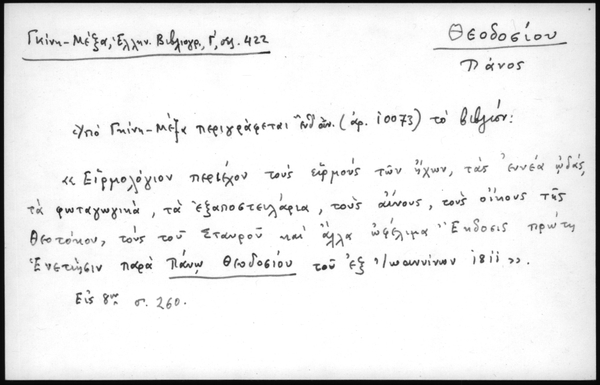 Γκίνη-Μέξα, Ἑλλην. Βιβλιογρ., Γ', σελ. 422
Θεοδοσίου
Πάνος
Ὑπὸ Γκίνη-Μέξα περιγράφεται ἐνθ' ἀν. (ἀρ. 10073) τὸ βιβλίον:
« Εἱρμολόγιον περιέχον τοὺς εἱρμοὺς τῶν ἤχων, τὰς ἐννέα ᾠδάς,
τὰ φωταγωγικά, τὰ ἐξαποστειλάρια, τοὺς αἴνους, τοὺς οἴκους τῆς
Θεοτόκου, τοὺς τοῦ Σταυροῦ καὶ ἄλλα ὠφέλιμα Ἔκδοσις πρώτη
Ἐνετίησιν παρὰ Πάνῳ Θεοδοσίου τοῦ ἐξ Ἰωαννίνων 1811 ».
Εἰς 8ον σ. 260.